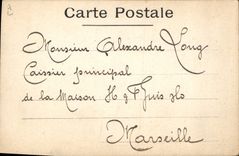 Carte Postale
Monsieur Alexandre Long
Caissier principal
de la Maison H. &
Marseille